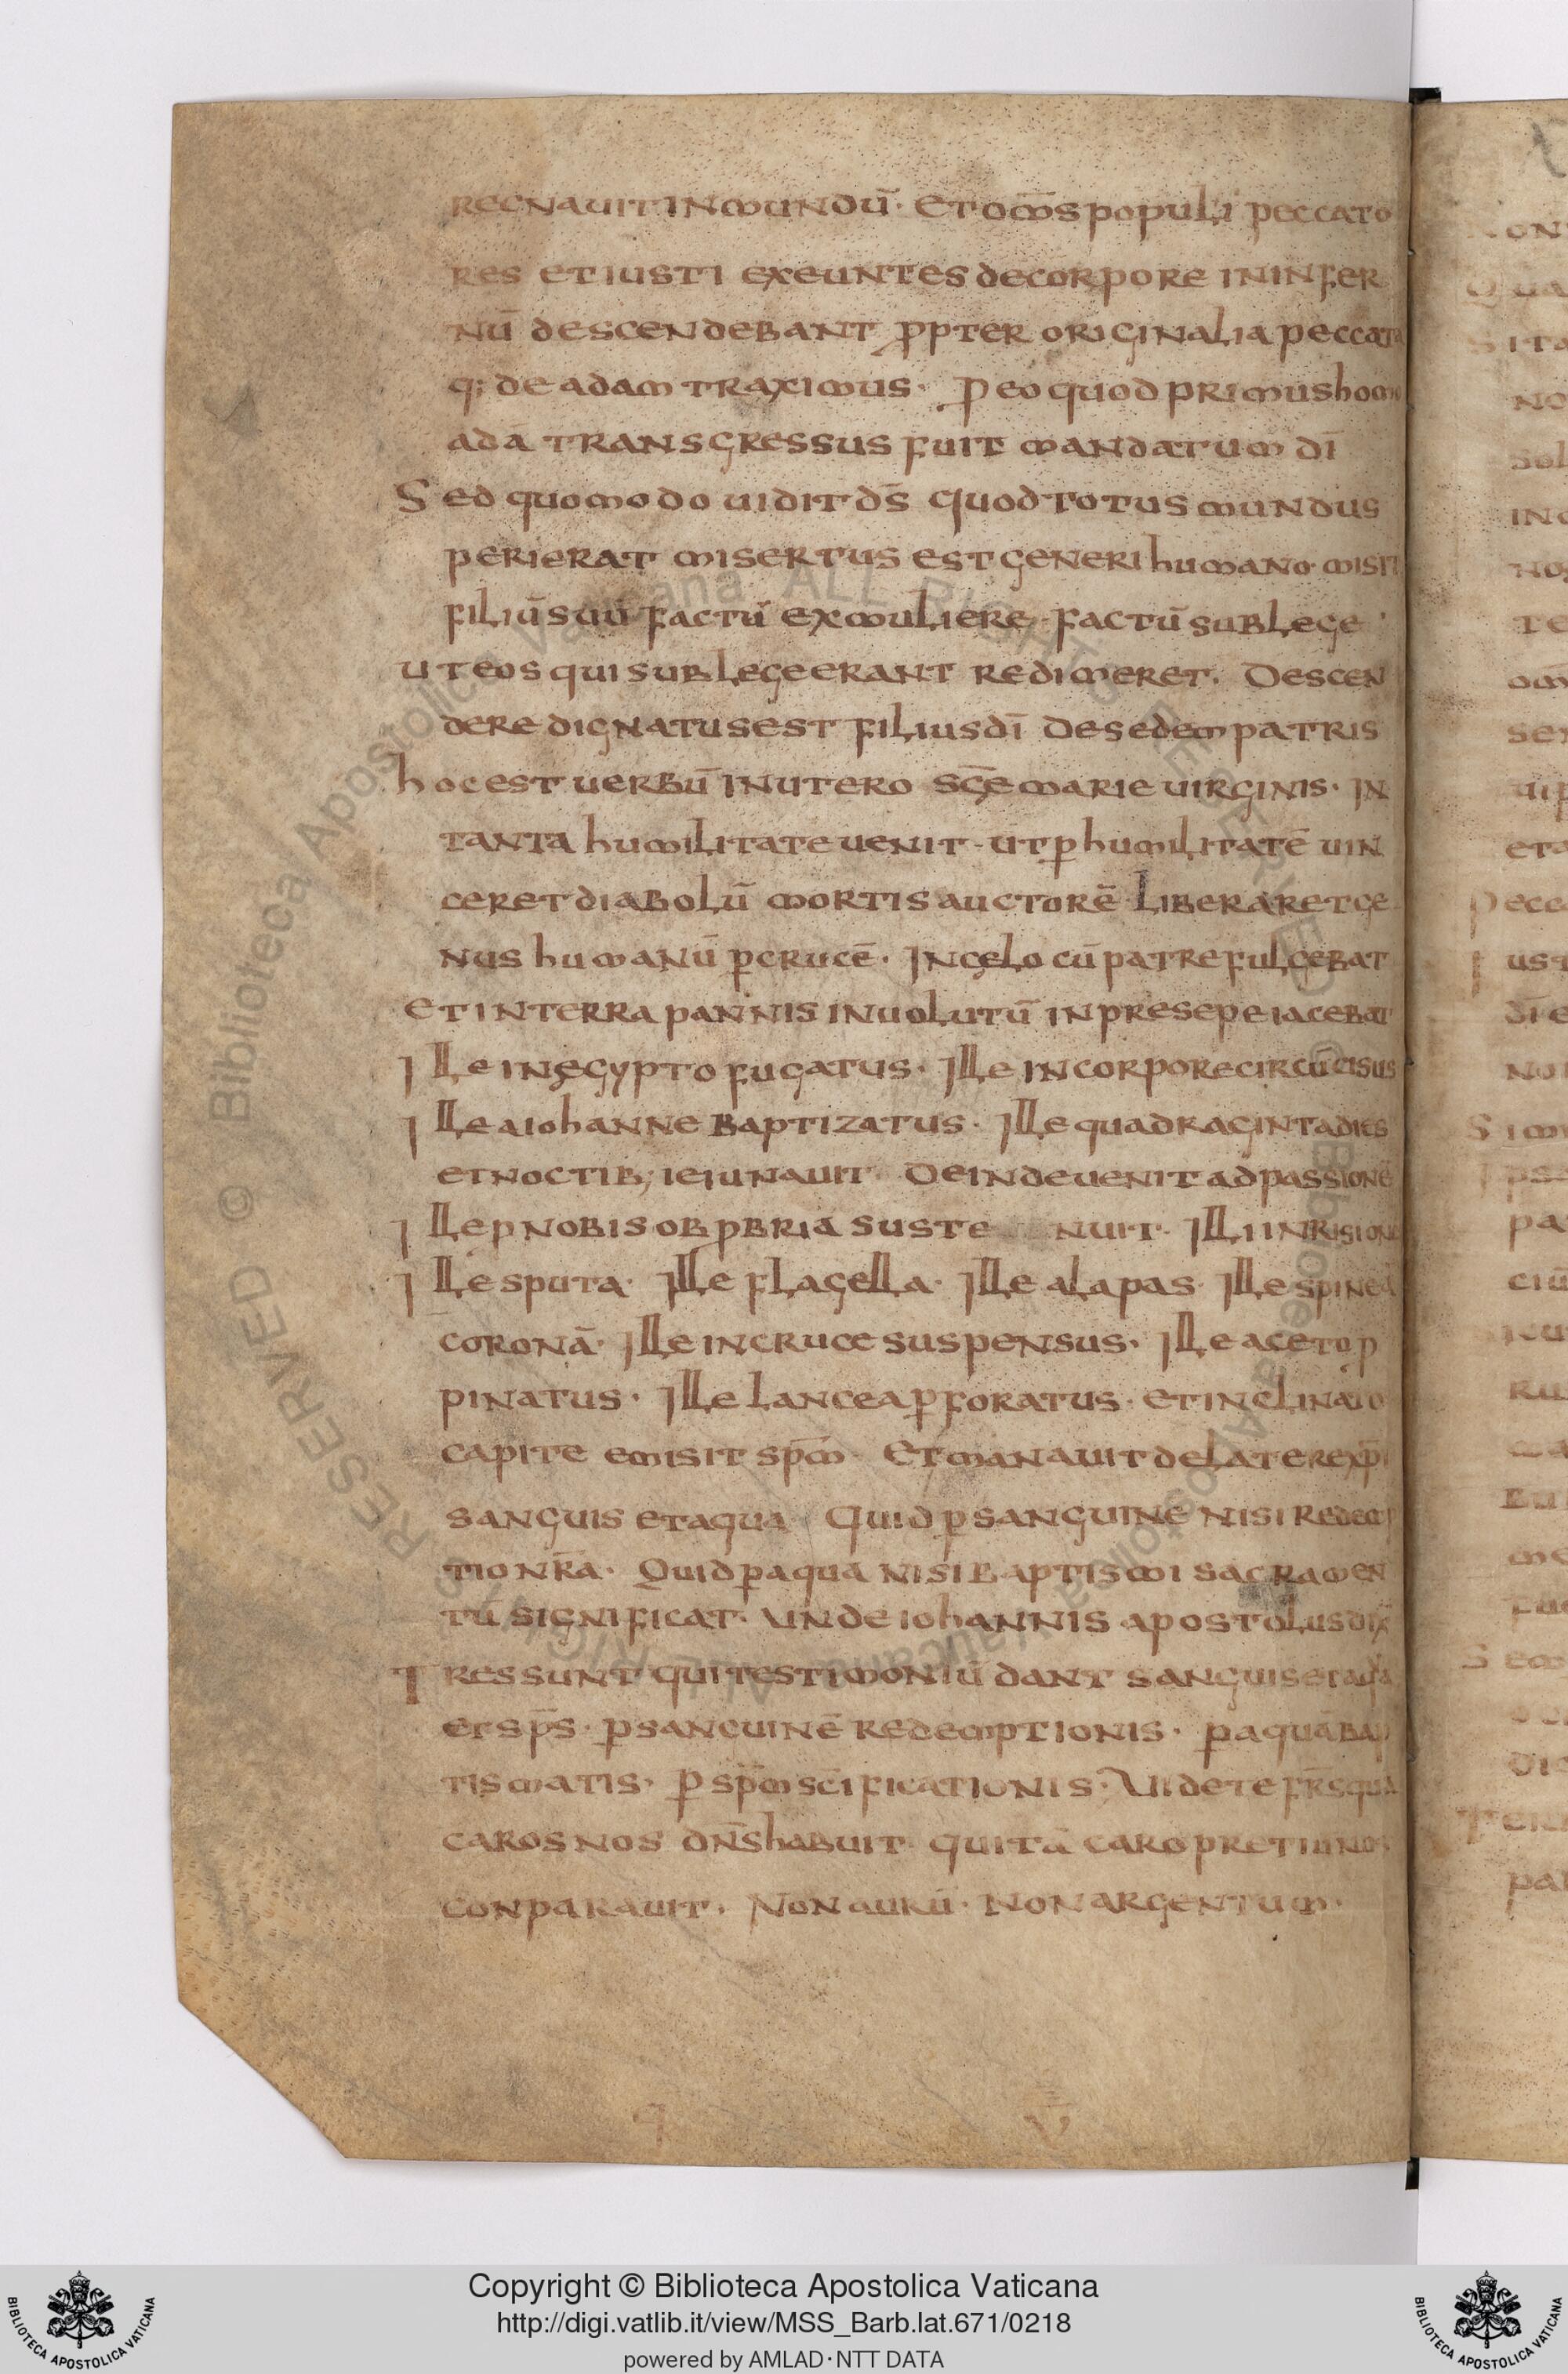 regnauit in mundū · et om̄s populi peccato
res et iusti exeuntes de corpore in infer
nū descendebant ꝓpter originalia peccata
q; de adam traximus · P eo quod primus homo
adā transgressus fuit mandatum dī
Sed quomodo uidit ds̄ quod totus mundus
perierat misertus est generi humano · misit
filiū suū factū ex muliere · factū sub lege
ut eos qui sub lege erant redimeret. Descen
dere dignatus est filius dī de sedem patris
hoc est uerbū in utero sc̄e marie uirginis · In
tanta humilitate uenit · ut ꝑ humilitatē uin
ceret diabolū mortis auctorē liberaret ge
nus humanū ꝑ crucē · In cęlo cū patre fulgebat
et in terra pannis inuolutū in presepe iacebat
Ille in ęgypto fugatus · Ille in corpore circūcisus
Ille a iohanne baptizatus · Ille quadraginta dies
et noctib; ieiunauit · Deinde uenit ad passionē
Ille ꝓ nobis obꝓbria suste nuit · Illi inrisione
Ille sputa · Ille flagella · Ille alapas · Ille spineā
coronā · Ille in cruce suspensus · Ille aceto p
pinatus · Ille lancea ꝑforatus · et inclinato
capite emisit sp̄m · Et manauit de latere xp̄i
sanguis et aqua Quid ꝑ sanguine nisi redemp
tio nr̄a · Quid ꝑ aquā nisi baptismi sacramen
tū significat · Unde iohannis apostolus dix̄
Tres sunt qui testimoniū dant sanguis et aqua
et sp̄s · ꝑ sanguinē redemptionis · ꝑ aquā bap
tismatis · ꝑ sp̄m sc̄ificationis · Uidete fr̄s quā
caros nos dn̄s habuit · qui tā caro pretiū nos
conparauit · Non aurū · Non argentum ·
Copyright © Biblioteca Apostolica Vaticana
http://digi.vatlib.it/view/MSS_Barb.lat.671/0218
powered by AMLAD · NTT DATA
BIBLIOTECA APOSTOLICA VATICANA
BIBLIOTECA APOSTOLICA VATICANA